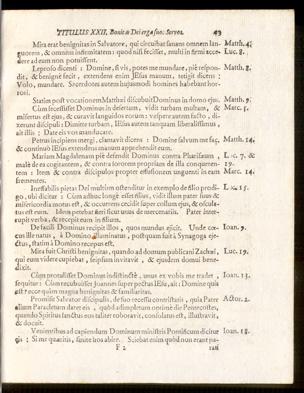 TITULUS XXII. Bonitas Dei erga suos Servos. 43
Mira erat benignitas in Salvatore, qui circuibat sanans omnem lan- Matth. 4.
guorem, & omnem infirmitatem: quod nisi fecisset, multi in firmi acce- Luc. 8.
dere ad eum non potuissent.
Leproso dicenti: Domine, si vis, potes me mundare, piè respon- Matth. 8.
dit, & benignè fecit, extendens enim JEsus manum, tetigit dicens:
Volo, mundare. Sacerdotes autem hujusmodi homines habebant hor-
rori.
Statim post vocationem Matthæi discubuit Dominus in domo ejus. Matth. 9.
Cùm secessisset Dominus in desertum, vidit turbam multam, & Marc. 5.
misertus est ejus, & curavit languidos eorum: vespere autem facto, di-
xerunt discipuli: Dimitte turbam, JEsus autem tanquam liberalissimus,
ait illis: Date eis vos manducare.
Petrus incipiens mergi, clamavit dicens: Domine salvum me fac, Matth. 14.
& continuò JEsus extendens manum apprehendit eum.
Mariam Magdalenam piè defendit Dominus contra Pharisæum, Luc. 7. &
malè de ea cogitantem, & contra sororem propriam de illa conqueren- 19.
tem: Item & contra discipulos propter effusionem unguenti in eam Marc. 14.
frementes.
Ineffabilis pietas Dei multùm ostenditur in exemplo de filio prodi- Luc. 15.
go, ubi dicitur: Cùm adhuc longè esset filius, vidit illum pater suus &
misericordia motus est, & occurrens cecidit super collum ejus, & oscula-
tus est eum. Idem petebat fieri sicut unus de mercenariis. Pater inter-
cupit verba, & recepit eum in filium.
De facili Dominus recipit illos, quos mundus ejicit. Unde cæ- Ioan. 9.
cus ille natus, à Domino illuminatus, postquam fuit à Synagoga eje-
ctus, statim à Domino receptus est.
Mira fuit Christi benignitas, quando ad domum publicani Zachæi, Luc. 19.
qui eum videre cupiebat, seipsum invitavit, & ejusdem domui bene-
dixit.
Cùm protulisset Dominus indistinctè, unus ex vobis me tradet, Ioan. 13.
sequitur: Cùm recubuisset Joannes super pectus JEsu, ait: Domine quis
est? ecce quàm magna benignitas & familiaritas.
Promisit Salvator discipulis, de suo recessu contristatis, quia Pater Actor. 2.
alium Paracletum daret eis, quod adimpletum omnino die Pentecostes,
quando Spiritus sanctus eos taliter roboravit, consolatus est, illustravit,
& docuit.
Venientibus ad capiendum Dominum ministris Pontificum dicitur Ioan. 18.
eis: Si me quæritis, sinite hos abire. Sciebat enim quòd non erant pa-
F 2 rati